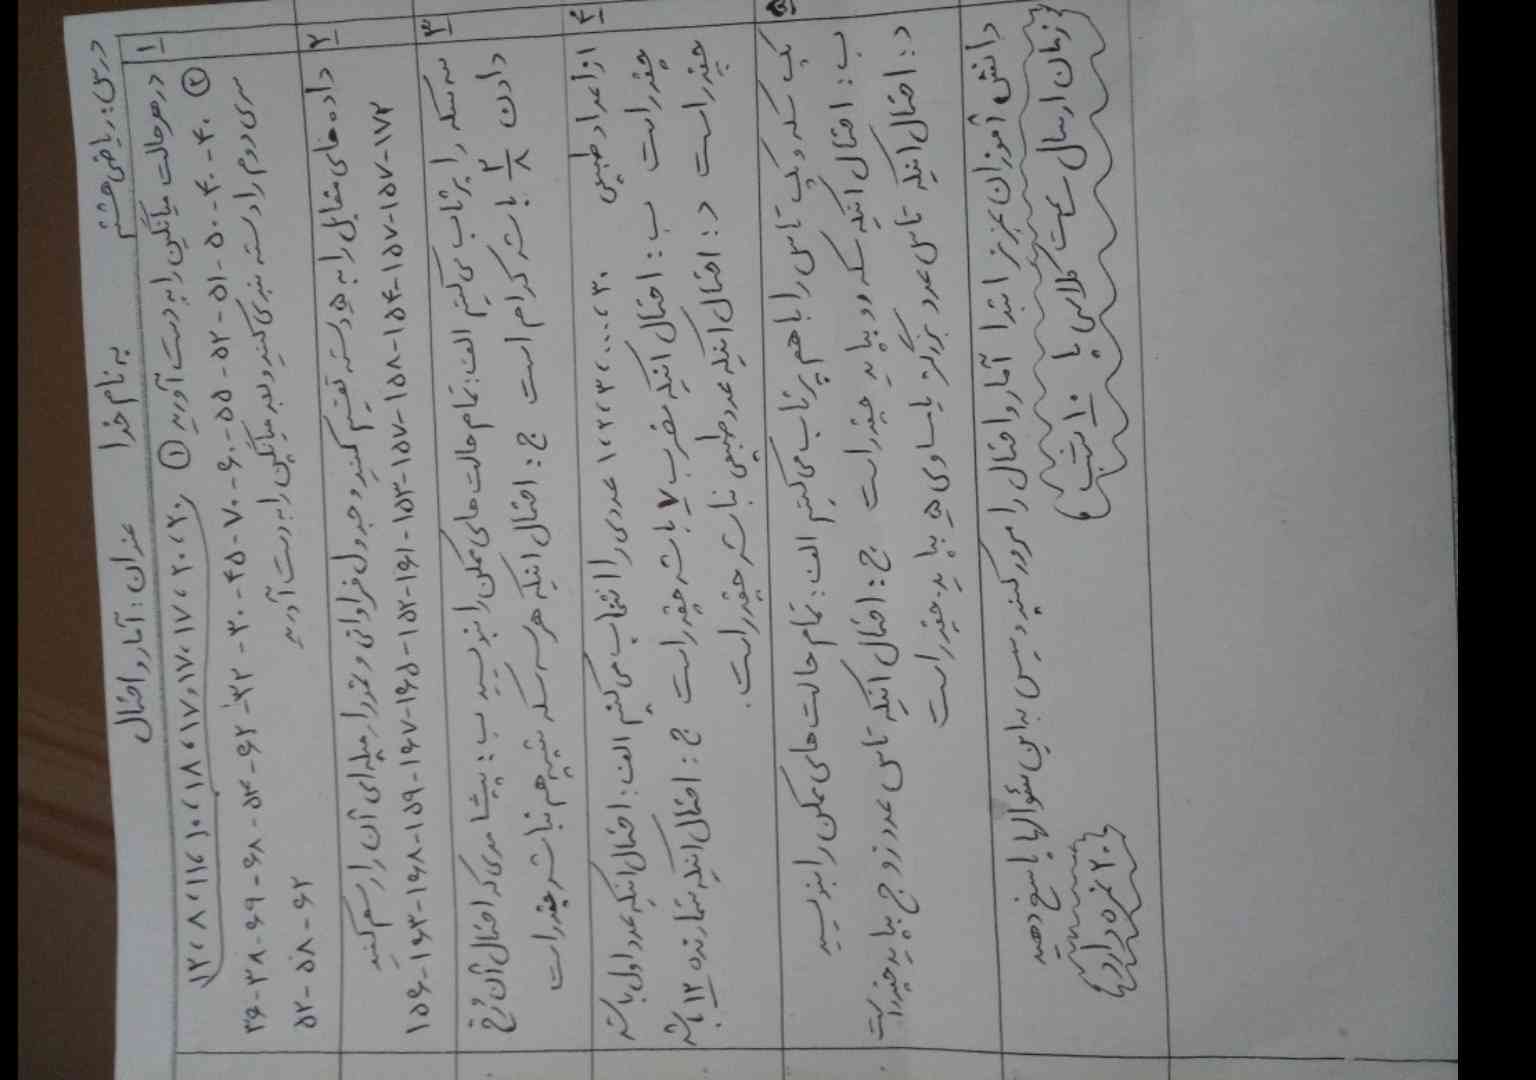 درس: ریاضی هشتم به نام خدا عنوان: آمار و احتمال
۱ در هر حالت میانگین را به دست آورید ① ۲۰، ۲۰، ۱۷، ۱۷، ۱۷، ۱۸، ۱۰، ۱۶، ۸، ۱۲
② ۴۰-۴۰-۵۰-۵۱-۵۲-۵۵-۶۰-۷۰-۴۵-۳۰-۳۲-۶۲-۵۴-۶۸-۶۹-۳۸-۳۶
سری دوم را دسته بندی کنید و بعد میانگین را به دست آورید ۶۲-۵۸-۵۲
۲ داده های مقابل را به ۵ دسته تقسیم کنید و جدول فراوانی و نمودار میله ای آن را رسم کنید
۱۷۲-۱۵۷-۱۵۷-۱۵۴-۱۵۸-۱۵۷-۱۵۳-۱۶۱-۱۵۲-۱۶۵-۱۶۷-۱۵۹-۱۶۸-۱۶۳-۱۵۶
۳ سه سکه را پرتاب می کنیم الف: تمام حالت های ممکن را بنویسید ب: پیشامدی که احتمال آن رخ
دادن ۳/۸ باشد کدام است ج: احتمال اینکه هر سه سکه شبیه هم نباشد چقدر است
۴ از اعداد طبیعی ۱،۲،۳،...،۳۰ عددی را انتخاب می کنیم الف: احتمال اینکه عدد اول باشد
چقدر است ب: احتمال اینکه مضرب ۷ باشد چقدر است ج: احتمال اینکه شمارنده ۱۲ باشد
چقدر است د: احتمال اینکه عدد طبیعی نباشد چقدر است.
۵ یک سکه و یک تاس را با هم پرتاب می کنیم الف: تمام حالت های ممکن را بنویسید
ب: احتمال اینکه سکه رو بیاید چقدر است ج: احتمال اینکه تاس عدد زوج بیاید چقدر است
د: احتمال اینکه تاس عدد بزرگتر یا مساوی ۵ بیاید چقدر است
دانش آموزان عزیز ابتدا آمار و احتمال را مرور کنید و سپس به این سئوالها پاسخ دهید
زمان ارسال تا ۱۰ شب
۲۰ نمره دارد